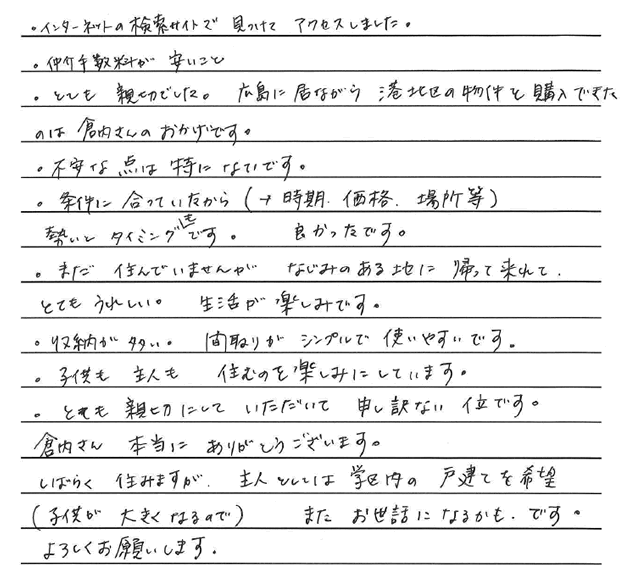 ・インターネットの検索サイトで 見つけて アクセスしました。
・仲介手数料が 安いこと
・とても 親切でした。 広島に居ながら 港北区の物件を購入できた
のは倉内さんのおかげです。
・不安な点は 特にないです。
・条件に合っていたから (→ 時期、価格、場所等)
勢いと タイミングもです。 良かったです。
・まだ 住んでいませんが なじみのある地に 帰って来れて、
とても うれしい。 生活が楽しみです。
・収納が多い。 間取りが シンプルで 使いやすいです。
・子供も 主人も 住むのを楽しみにしています。
・とても親切にして いただいて 申し訳ない 位です。
倉内さん 本当に ありがとうございます。
しばらく 住みますが、 主人としては 学区内の 戸建てを希望
(子供が 大きくなるので) また お世話になるかも、です。
よろしくお願いします。